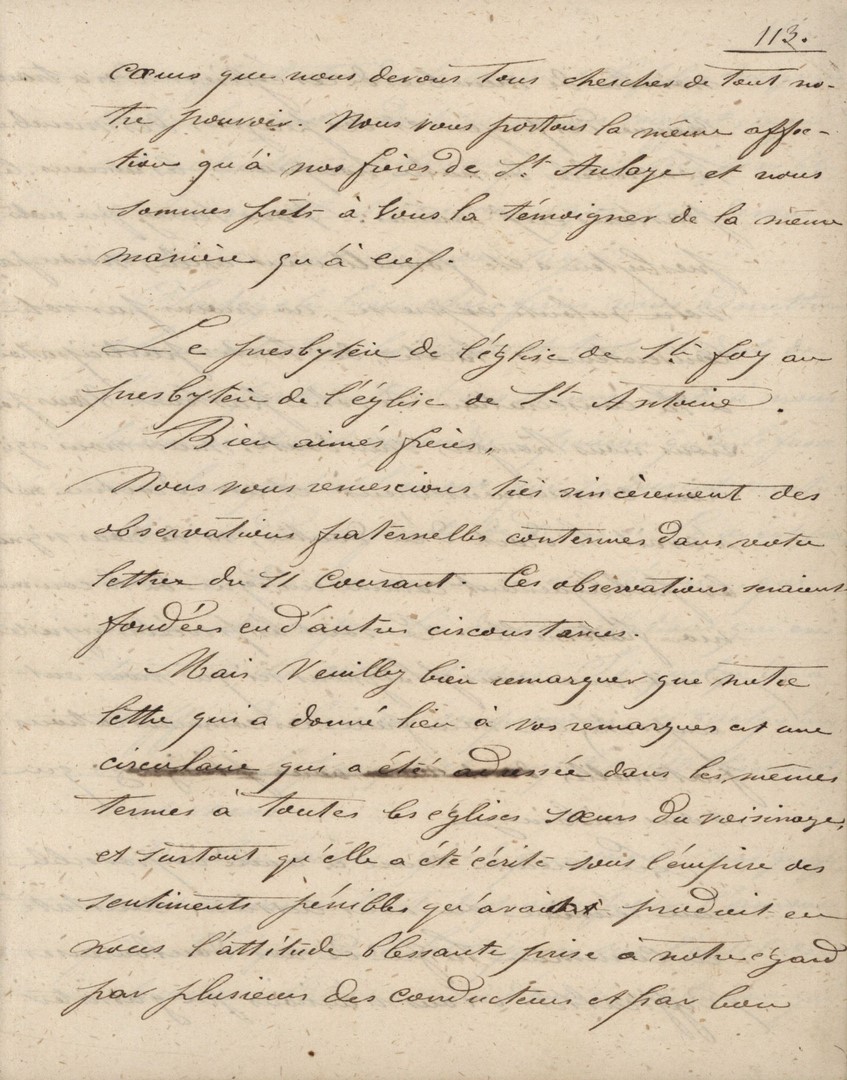 113.
cœurs que nous devons tous chercher de tout no-
tre pouvoir. Nous vous portons la même affec-
tion qu'à nos frères de St. Aulaye et nous
sommes prêts à vous la témoigner de la même
manière qu'à eux.
Le presbytère de l'église de Ste foy au
presbytère de l'église de St. Antoine.
Bien aimés frères,
Nous vous remercions très sincèrement des
observations fraternelles contenues dans votre
lettre du 11 Courant. Ces observations seraient
fondées en d'autres circonstances.
Mais Veuillez bien remarquer que notre
lettre qui a donné lieu à vos remarques est une
circulaire qui a été adressée dans les mêmes
termes à toutes les églises sœurs du voisinage,
et surtout qu'elle a été écrite sous l'empire des
sentiments pénibles qu'avait produit en
nous l'attitude blessante prise à notre égard
par plusieurs des conducteurs et par bon